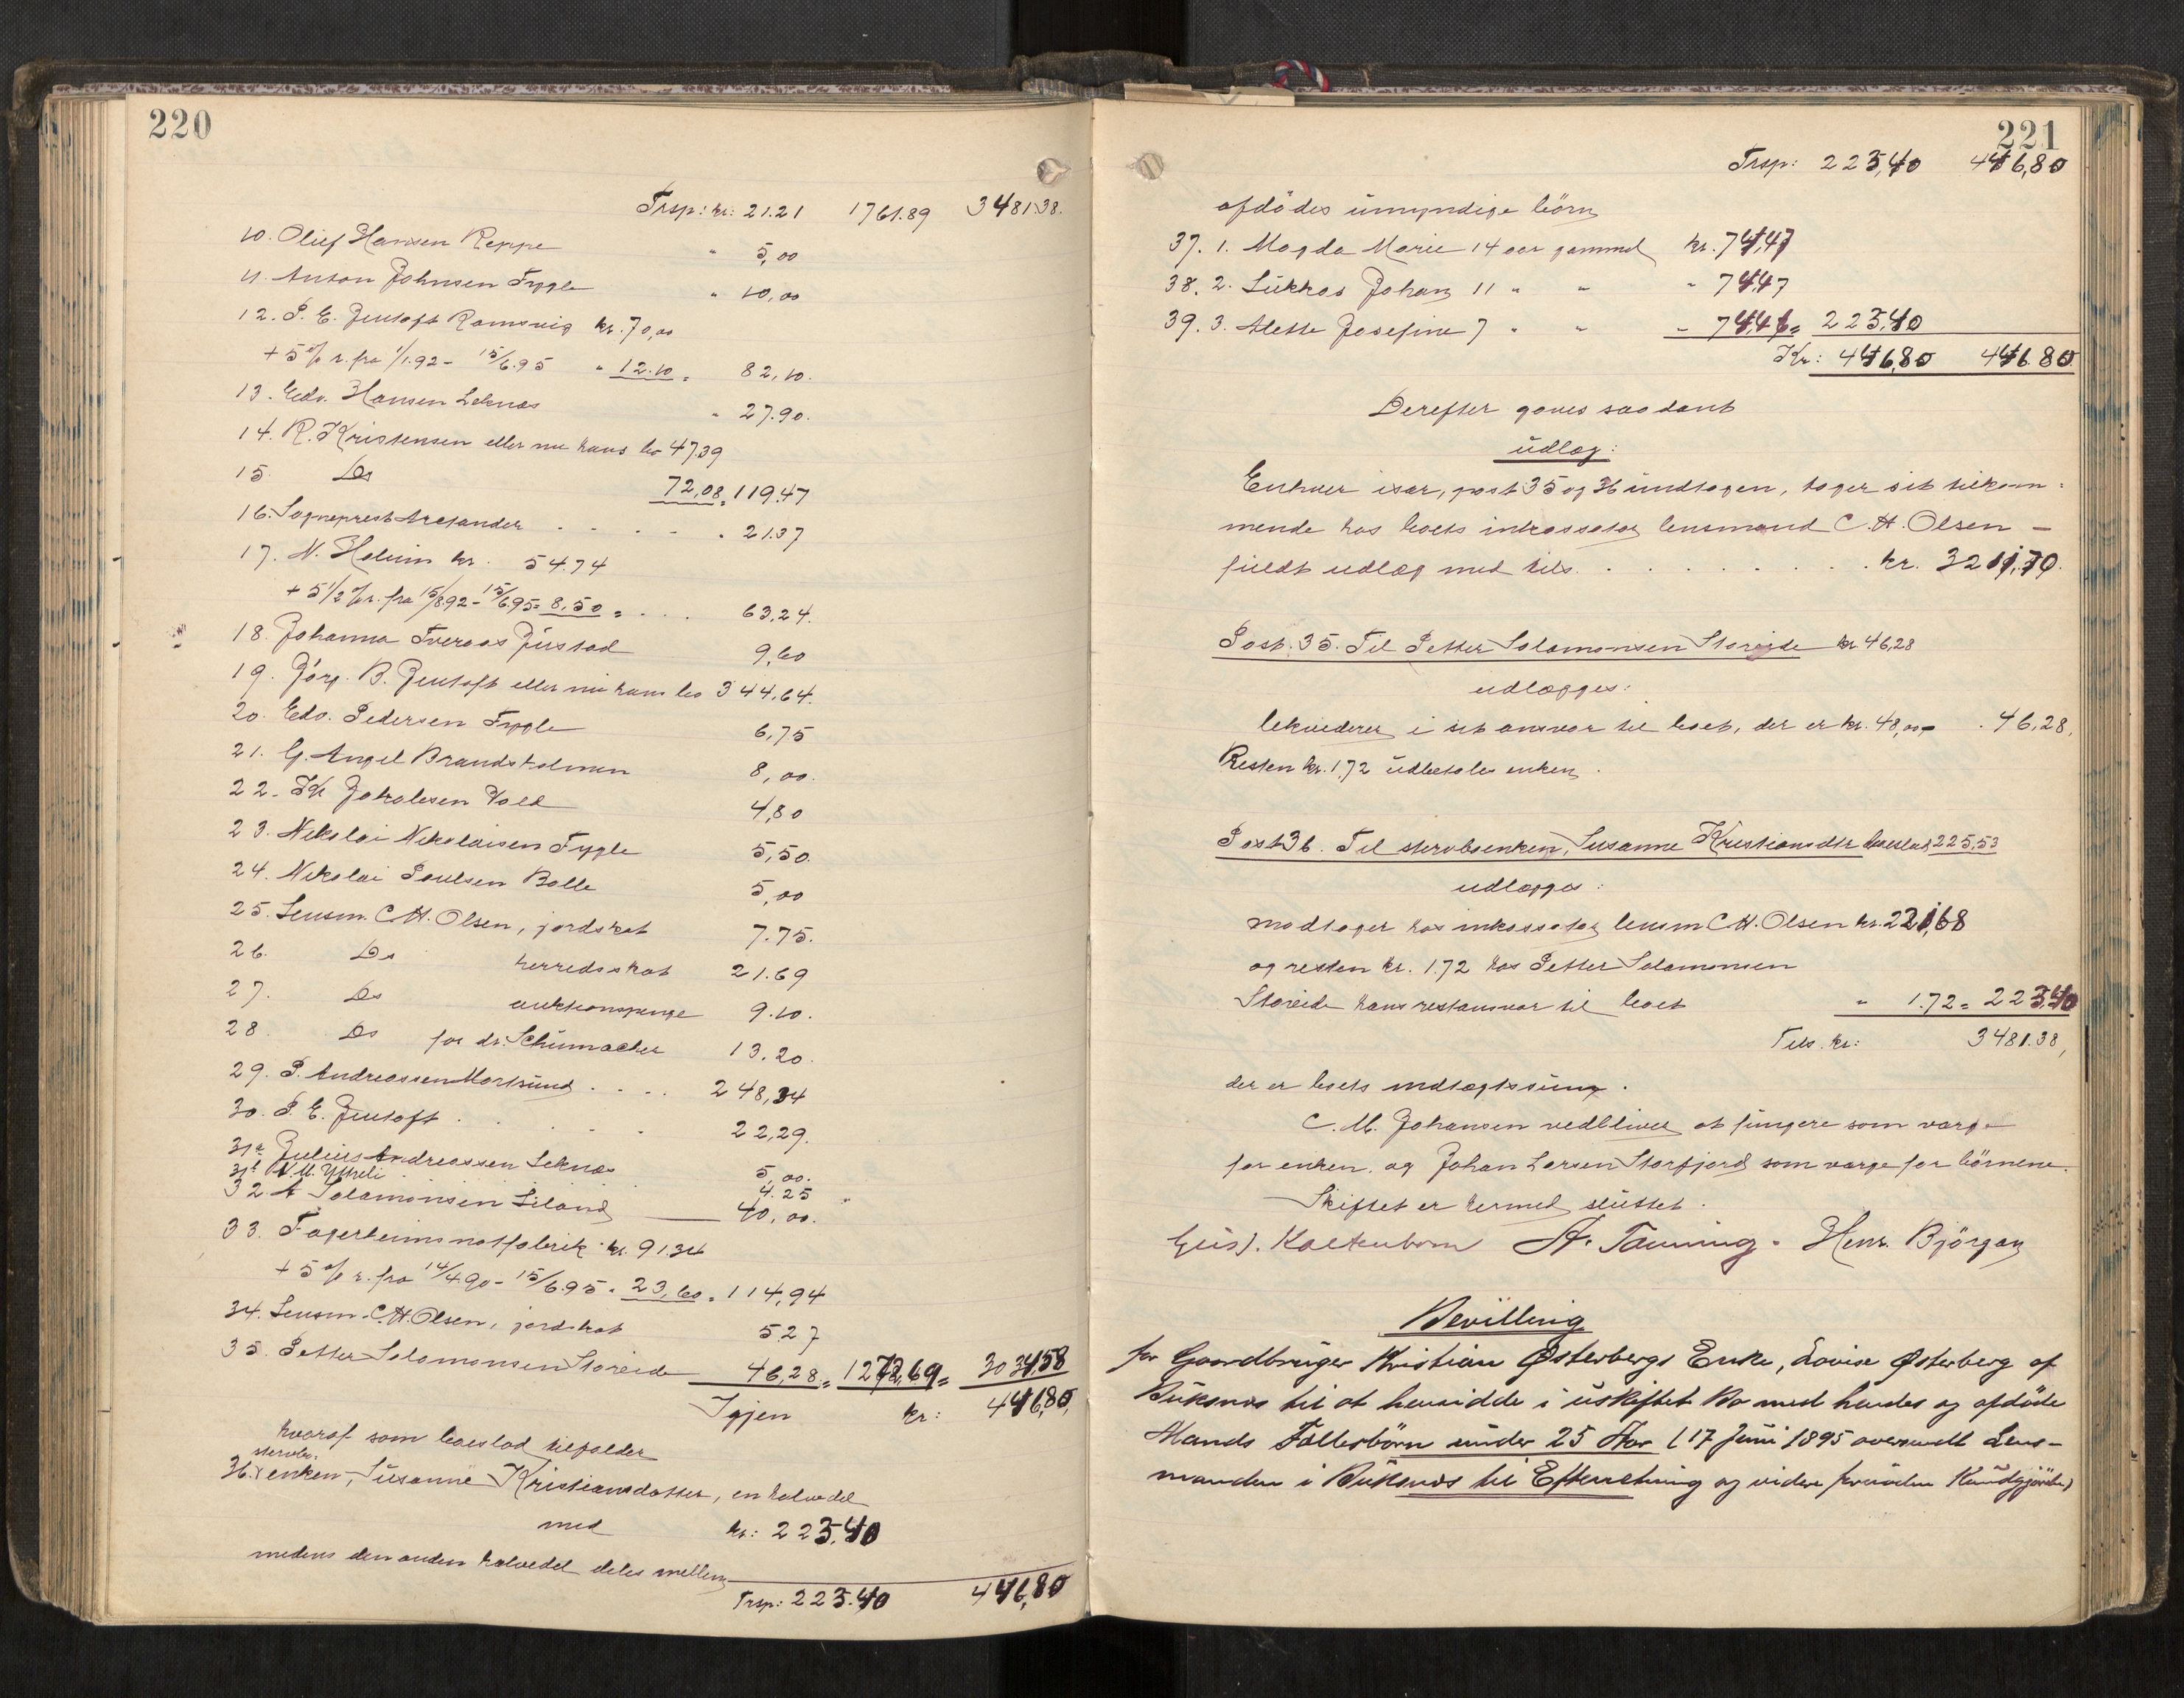 220
Trsp: kr: 21.21 1761.89 3481.38.
10. Oluf Hansen Reppe " 5,00
11. Anton Johnsen Fygle " 10,00
12. P. E. Jentoft Ramsvig kr. 70,00
+ 5 % r. fra 1/1.92 - 15/6.95 " 12.10 = 82,10.
13. Edv. Hansen Leknæs " 27.90.
14. R. Kristensen eller nu hans bo 47.39
15. Do 72,08 = 119.47
16. Sogneprest Arctander . . . . 21.37
17. N. Holum kr. 54.74
+ 5 1/2 % r. fra 15/8.92 - 15/6.95 = 8,50 = . . . 63,24.
18. Johanna Tveraas Justad 9,60
19. Jørg. B. Jentoft eller nu hans bo 344,64.
20. Edv. Pedersen Fygle 6,75
21. G. Angel Brandsholmen 8,00.
22. Kr Jakobsen Vold 4,80
23. Nikolai Nikolaisen Fygle 5,50.
24. Nikolai Paulsen Bolle 5,00
25. Lensm. C. H. Olsen, jordskat 7.75.
26. Do herredsskat 21.69
27. Do auktionspenge 9.10.
28 Do for dr. Schumacher 13.20.
29. P. Andreassen Mortsund . . . . 248,34
30. P. E. Jentoft . . . . 22,29.
31a Julius Andreassen Leknæs 5,00.
31b N. M. Ytreli 4.25
32. A Salamonsen Liland 40,00.
33. Fagerheims notfabrik kr. 91.34
+ 5 % r. fra 14/4.90 - 15/6.95 . 23,60 = 114,94
34. Lensm. C. H. Olsen, jordskat 5.27
35. Petter Salamonsen Storeide 46,28 = 1272,69 = 3034,58
Igjen kr: 446,80,
hvoraf som boeslod tilfalder
36. stervbo. enken, Susanne Kristiansdatter, en halvdel
med kr: 223,40
medens den anden halvdel deles mellem
Trsp: 223.40 446,80
221
Trsp: 223,40 446,80
afdødes umyndige børn
37. 1. Magda Marie 14 aar gammel kr. 74,47
38. 2. Lukkas Johan 11 " " " 74,47
39. 3. Alette Josefine 7 " " " 74,46 = 223,40
Kr: 446,80 446.80
Derefter gaves saadant
udlæg:
Enhver især, post 35 og 36 undtagen, tager sit tilkom-
mende hos boets inkassator lensmand C. H. Olsen -
fuldt udlæg med tils. . . . . . . . kr. 3211,70.
Post. 35. Til Petter Salamonsen Storeide kr 46,28
udlægges:
likviderer i sit ansvar til boet, der er kr. 48,00 - . 46,28,
Resten kr. 1.72 udbetales enken.
Post 36. Til stervboenken, Susanne Kristiansdtr boeslod 225.53
udlægges:
modtager hos inkassator lensm C. H. Olsen kr. 221,68
og resten kr. 1.72 hos Petter Salamonsen
Storeide hans restansvar til boet " 1.72 = 223,40
Tils. kr: 3481.38,
der er boets indtægtssum.
C. M. Johansen vedbliver at fungere som værge
for enken, og Johan Larsen Storfjord som værge for børnene.
Skiftet er hermed sluttet.
Gust. Kaltenborn A. Tanning. Henr. Björgan
Bevilling
for Gaardbruger Kristian Østerbergs Enke, Lovise Østerberg af
Buksnæs til at hensidde i uskiftet Bo med hendes og afdøde
Mands Fællesbørn under 25 Aar (17 Juni 1895 oversendt Lens-
manden i Buksnæs til Efterretning og videre fornøden Kundgjørelse)